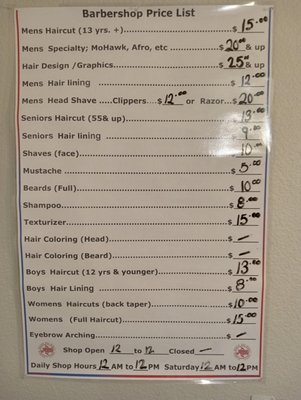 Barbershop Price List
Mens Haircut (13 yrs. +)........................$ 15.00
Mens Specialty; MoHawk, Afro, etc ................$ 20.00 & up
Hair Design /Graphics..............................$ 25.00 & up
Mens Hair lining ..............................$ 12.00
Mens Head Shave .....Clippers....$ 12.00 or Razor...$ 20.00
Seniors Haircut (55& up)..............................$ 13.00
Seniors Hair lining ..............................$ 9.00
Shaves (face)..............................$ 10.00
Mustache ..............................$ 5.00
Beards (Full)..............................$ 10.00
Shampoo..............................$ 8.00
Texturizer..............................$ 15.00
Hair Coloring (Head)..............................$ —
Hair Coloring (Beard)..............................$ —
Boys Haircut (12 yrs & younger)....................$ 13.00
Boys Hair Lining ..............................$ 8.00
Womens Haircuts (back taper)....................$ 10.00
Womens (Full Haircut)..............................$ 15.00
Eyebrow Arching..............................$ —
Shop Open 12 to 12 Closed —
Daily Shop Hours 12 AM to 12 PM Saturday 12 AM to 12 PM